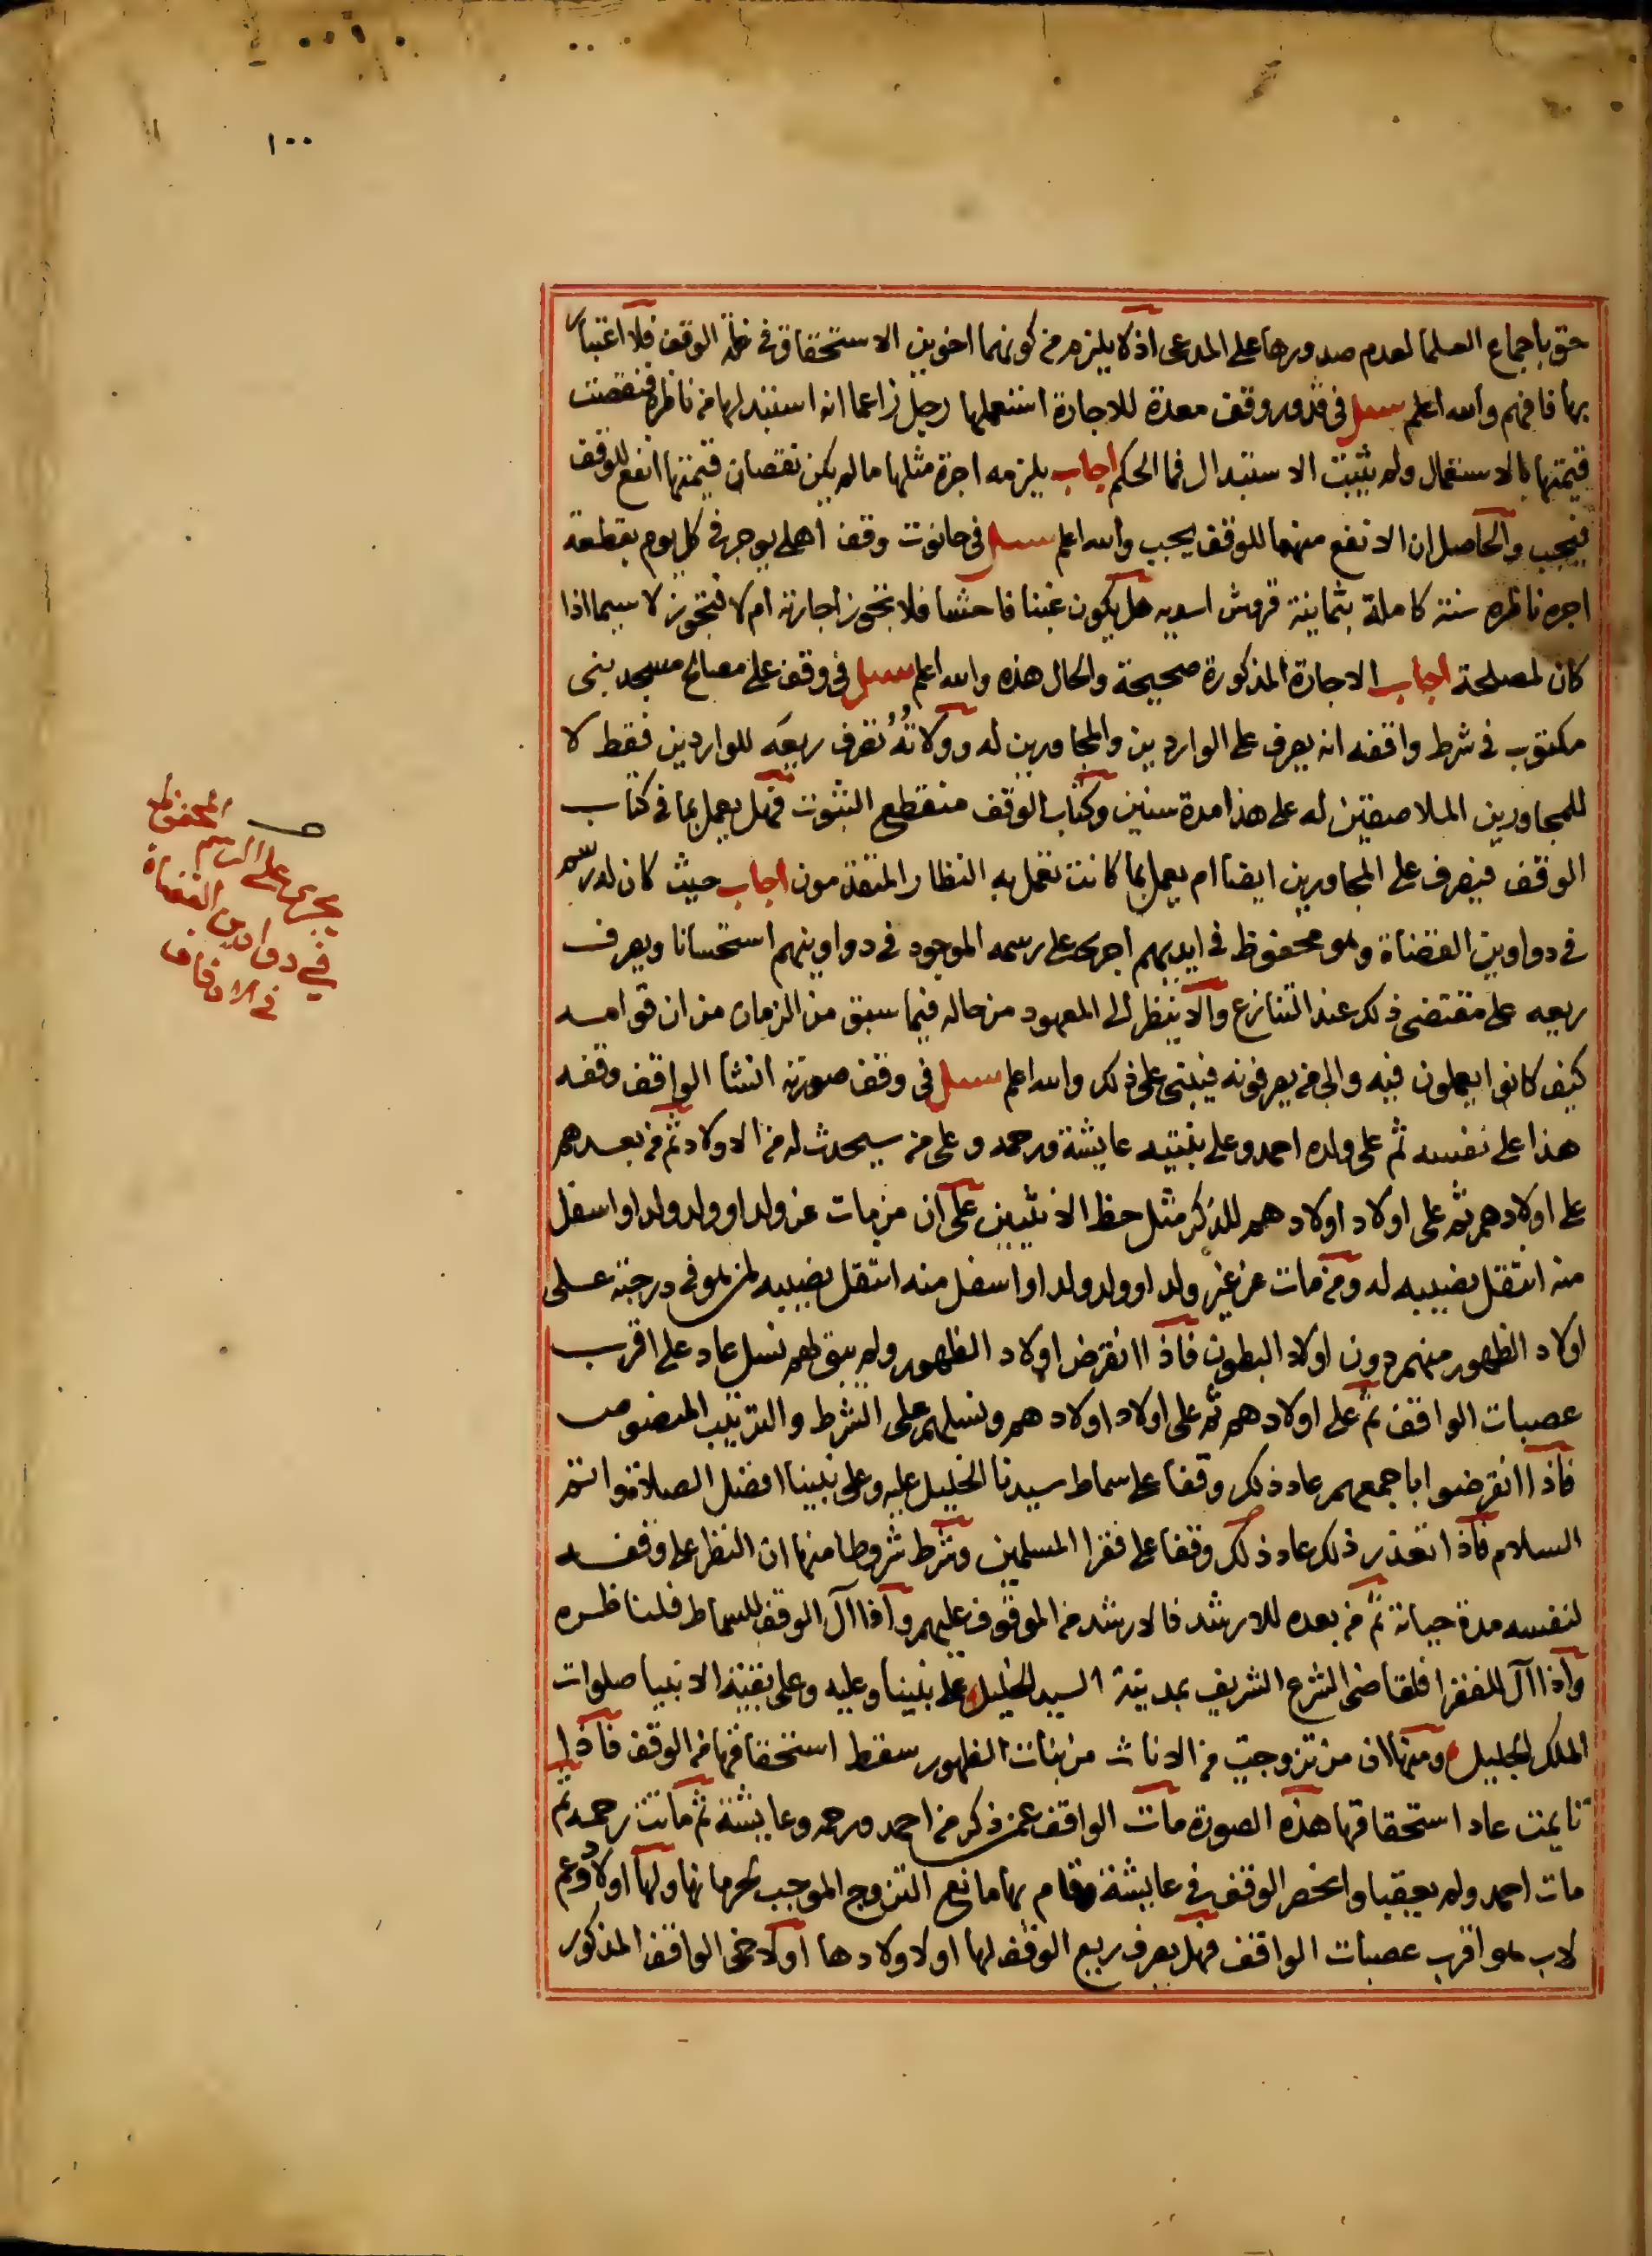 ١٠٠
حق باجماع العلما لعدم صدورها على المدعى اذ لا يلزم من كونهما اخوين الاستحقاق في غلة الوقف فلا اعتبار
بها فافهم والله اعلم سيل في قدور وقف معدة للاجارة استعملها رجل زاعما انه استبدلها من ناظره فنقصت
قيمتها بالاستعمال ولم يثبت الاستبدال فما الحكم اجاب يلزمه اجرة مثلها مالم يكن نقصان قيمتها انفع للوقف
فيجب والحاصل ان الانفع منهما للوقف يجب والله اعلم سيل في حانوت وقف اهلي يوجر في كل يوم بقطعة
اجره ناظره سنة كاملة بثمانية قروش اسديه هل يكون غبنا فاحشا فلا تجوز اجارته ام لا فتجوز لا سيما اذا
كان لمصلحة اجاب الاجارة المذكورة صحيحة والحال هذه والله اعلم سيل في وقف على مصالح مسجد بنى
مكتوب في شرط واقفه انه يصرف على الواردين والمجاورين له وولاته تصرف ريعه للواردين فقط لا
للمجاورين الملاصقين له على هذا مدة سنين وكتاب الوقف منقطع الثبوت فهل يعمل بما في كتاب
الوقف فيصرف على المجاورين ايضا ام يعمل بما كانت تعمل به النظار المتقدمون اجاب حيث كان له رسم
في دواوين القضاة وهو محفوظ في ايديهم اجرى على رسمه الموجود في دواوينهم استحسانا ويصرف
ريعه على مقتضى ذلك عند التنازع والا ينظر الى المعهود من حاله فيما سبق من الزمان من ان قوامه
كيف كانوا يعملون فيه والى من يصرفونه فيبنى على ذلك والله اعلم سيل في وقف صورته انشا الواقف وقفه
هذا على نفسه ثم على ولده احمد وعلى بنتيه عايشة ورحمه وعلى من سيحدث له من الاولاد ثم من بعدهم
على اولادهم ثم على اولاد اولادهم للذكر مثل حظ الانثيين على ان من مات عن ولد او ولد ولد او اسفل
منه انتقل نصيبه له ومن مات عن غير ولد او ولد ولد او اسفل منه انتقل نصيبه لمن هو في درجته على
اولاد الظهور منهم دون اولاد البطون فاذا انقرض اولاد الظهور ولم يبق لهم نسل عاد على اقرب
عصبات الواقف ثم على اولادهم ثم على اولاد اولادهم ونسلهم على الشرط والترتيب المنصوص
فاذا انقرضوا باجمعهم عاد ذلك وقفا على سماط سيدنا الخليل عليه وعلى نبينا افضل الصلاة واتم
السلام فاذا تعذر ذلك عاد ذلك وقفا على فقرا المسلمين وشرط شروطا منها ان النظر على وقفه
لنفسه مدة حياته ثم من بعده للارشد فالارشد من الموقوف عليهم واذا آل الوقف للسماط فلناظره
واذا آل للفقرا فلقاضى الشرع الشريف بمدينة السيد الخليل على نبينا وعليه وعلى بقية الانبيا صلوات
الملك الجليل ومنها ان من تزوجت من الاناث من بنات الظهور سقط استحقاقها من الوقف فاذا
تايمت عاد استحقاقها هذه الصورة مات الواقف عمن ذكر من احمد ورحمه وعايشة ثم ماتت رحمه ثم
مات احمد ولم يعقبا وانحصر الوقف في عايشة وقام بها مانع التزوج الموجب لحرمانها ولها اولاد وعم
لاب هو اقرب عصبات الواقف فهل يصرف ريع الوقف لها او لاولادها او لاخى الواقف المذكور
المحفوظ
يجرى على الرسم
في دواوين القضاة
في الاوقاف